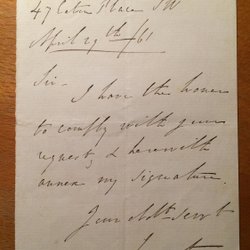 47 Eaton Place SW
April 29th /61
Sir -
I have the honor
to comply with your
request, & herewith
annex my signature.
Your Obdt Servt